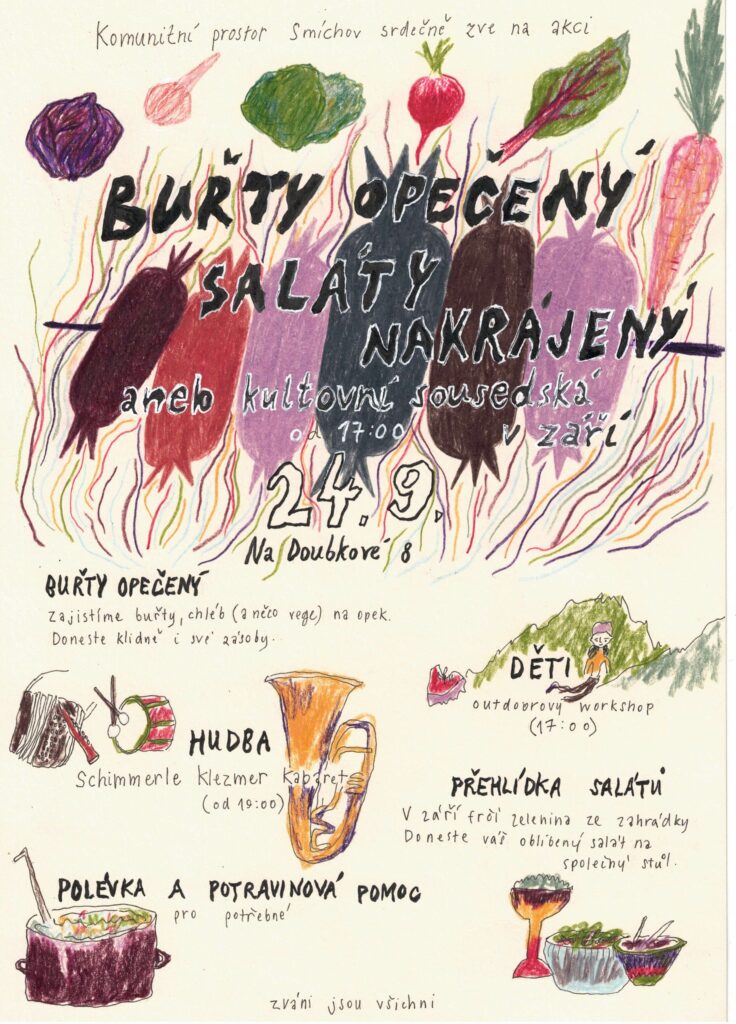 Komunitní prostor Smíchov srdečně zve na akci
BUŘTY OPEČENÝ
SALÁTY
NAKRÁJENÝ
aneb kultovní sousedská
od 17:00 v září
24.9.
Na Doubkové 8
BUŘTY OPEČENÝ
Zajistíme buřty, chléb (a něco vege) na opek.
Doneste klidně i své zásoby.
DĚTI
outdoorový workshop
(17:00)
HUDBA
Schimmerle Klezmer Kabaret
(od 19:00)
PŘEHLÍDKA SALÁTŮ
V září frčí zelenina ze zahrádky
Doneste váš oblíbený salát na
společný stůl.
POLÉVKA A POTRAVINOVÁ POMOC
pro potřebné
zváni jsou všichni